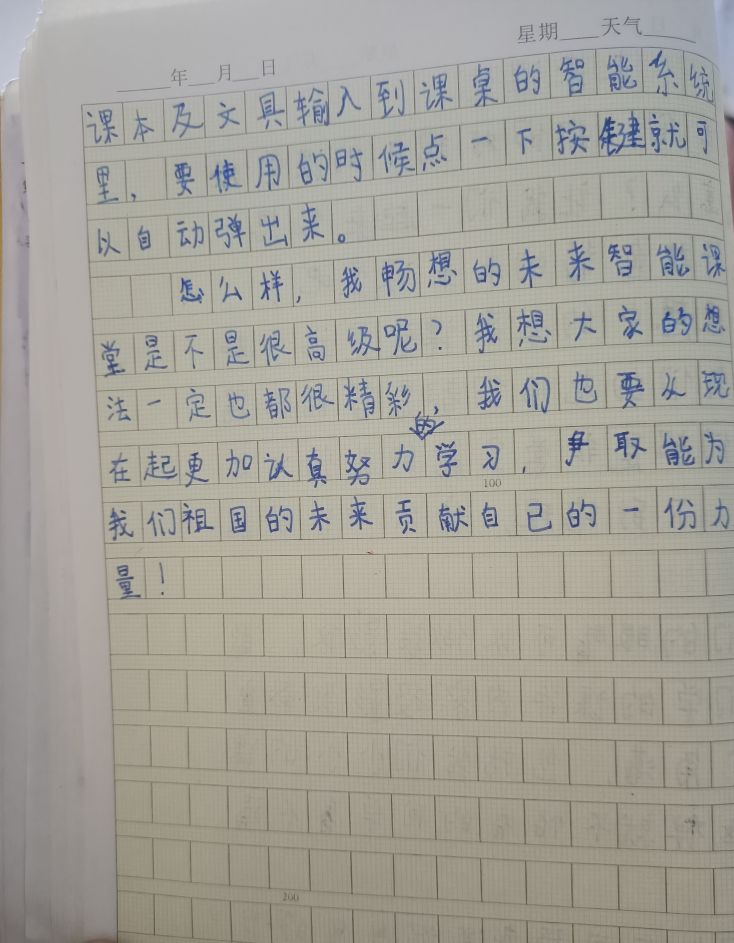 星期____天气____
____年__月__日
课本及文具输入到课桌的智能系统
里，要使用的时候点一下按键就可
以自动弹出来。
怎么样，我畅想的未来智能课
堂是不是很高级呢？我想大家的想
法一定也都很精彩，我们也要从现
在起更加认真努力的学习，争取能为
100
我们祖国的未来贡献自己的一份力
量！
200